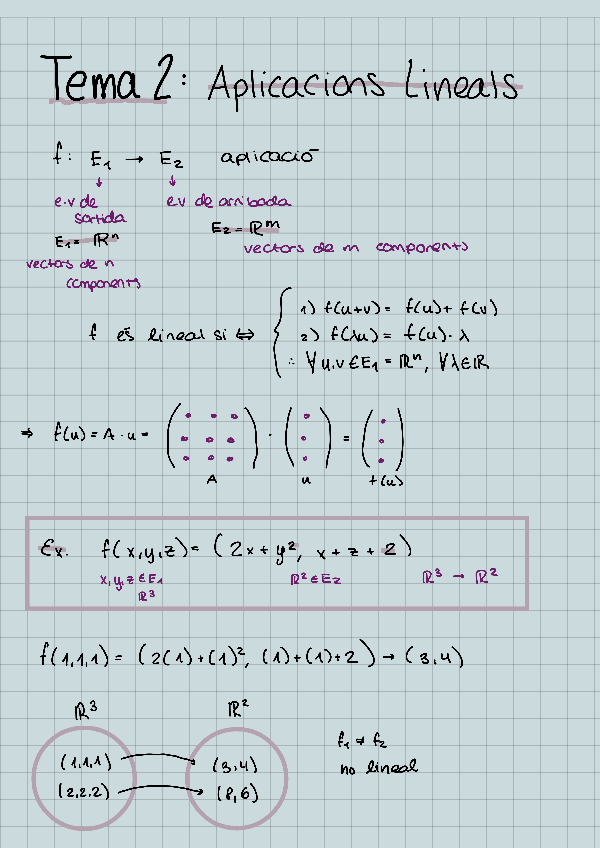 Tema 2: Aplicacions Lineals
f: E₁ → E₂ aplicació
↓ ↓
e.v de sortida
e.v de arribada
E₁ = ℝⁿ
E₂ = ℝᵐ
vectors de n components
vectors de m components
f és lineal si ⇔
1) f(u+v) = f(u) + f(v)
2) f(λu) = f(u) · λ
∴ ∀ u,v ∈ E₁ = ℝⁿ, ∀λ∈ℝ
⇒ f(u) = A · u =
( ) · ( ) = ( )
A u f(u)
Ex. f(x,y,z) = (2x + y², x + z + 2)
x,y,z ∈ E₁ ℝ² ∈ E₂ ℝ³ → ℝ²
ℝ³
f(1,1,1) = (2(1)+(1)², (1)+(1)+2) → (3,4)
ℝ³ ℝ²
(1,1,1) (3,4)
(2,2,2) (8,6)
f₁ ≠ f₂
no lineal